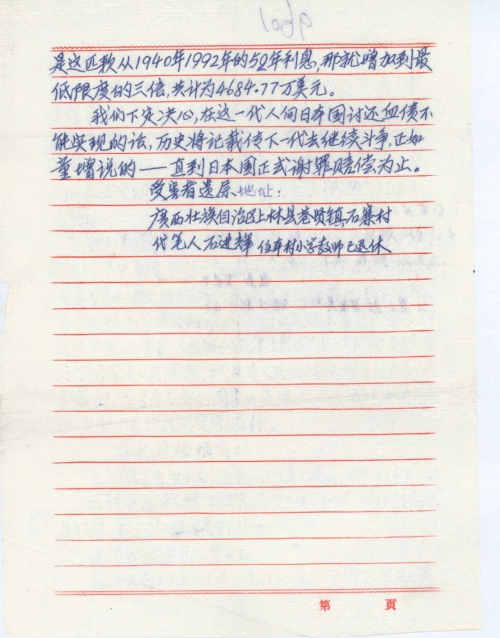 是这匹款从1940年1992年的52年利息,那就增加到最
低限度的三倍,共计为4684.77万美元。
我们下定决心,在这一代人向日本国讨还血债不
能实现的话,历史将记载传下一代去继续斗争,正如
童增说的——直到日本国正式谢罪赔偿为止。
受害者遗属、地址:
广西壮族自治区上林县巷贤镇石寨村
代笔人石进群 任本村小学教师已退休
第 页